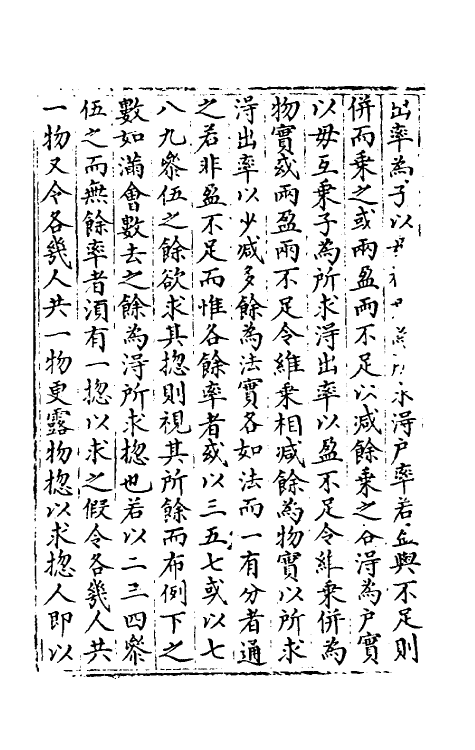 出率為子以母相乘為所求得戶率若盈與不足則
併而乘之或兩盈兩不足以减餘乘之合得為戶實
以毋互乘子為所求得出率以盈不足令維乘併為
物實或兩盈兩不足令維乘相减餘為物實以所求
淂出率以少减多餘為法實各如法而一有分者通
之若非盈不足而惟各餘率者或以三五七或以七
八九叅伍之餘欲求其揔則視其所餘而布例下之
數如滿會數去之餘為淂所求揔也若以二三四叅
伍之而無餘率者湏有一揔以求之假令各幾人共
一物又令各幾人共一物更露物揔以求揔人即以